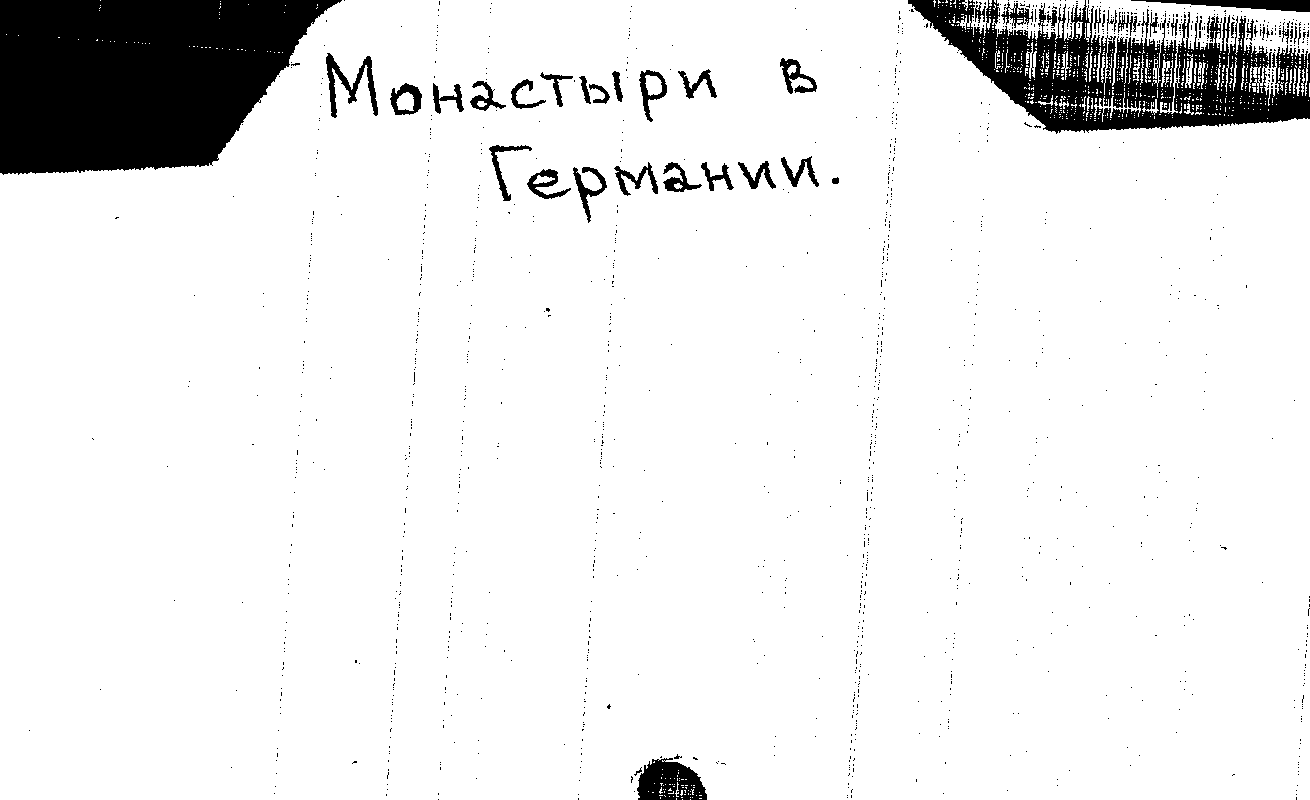 Монастыри в
Германии.